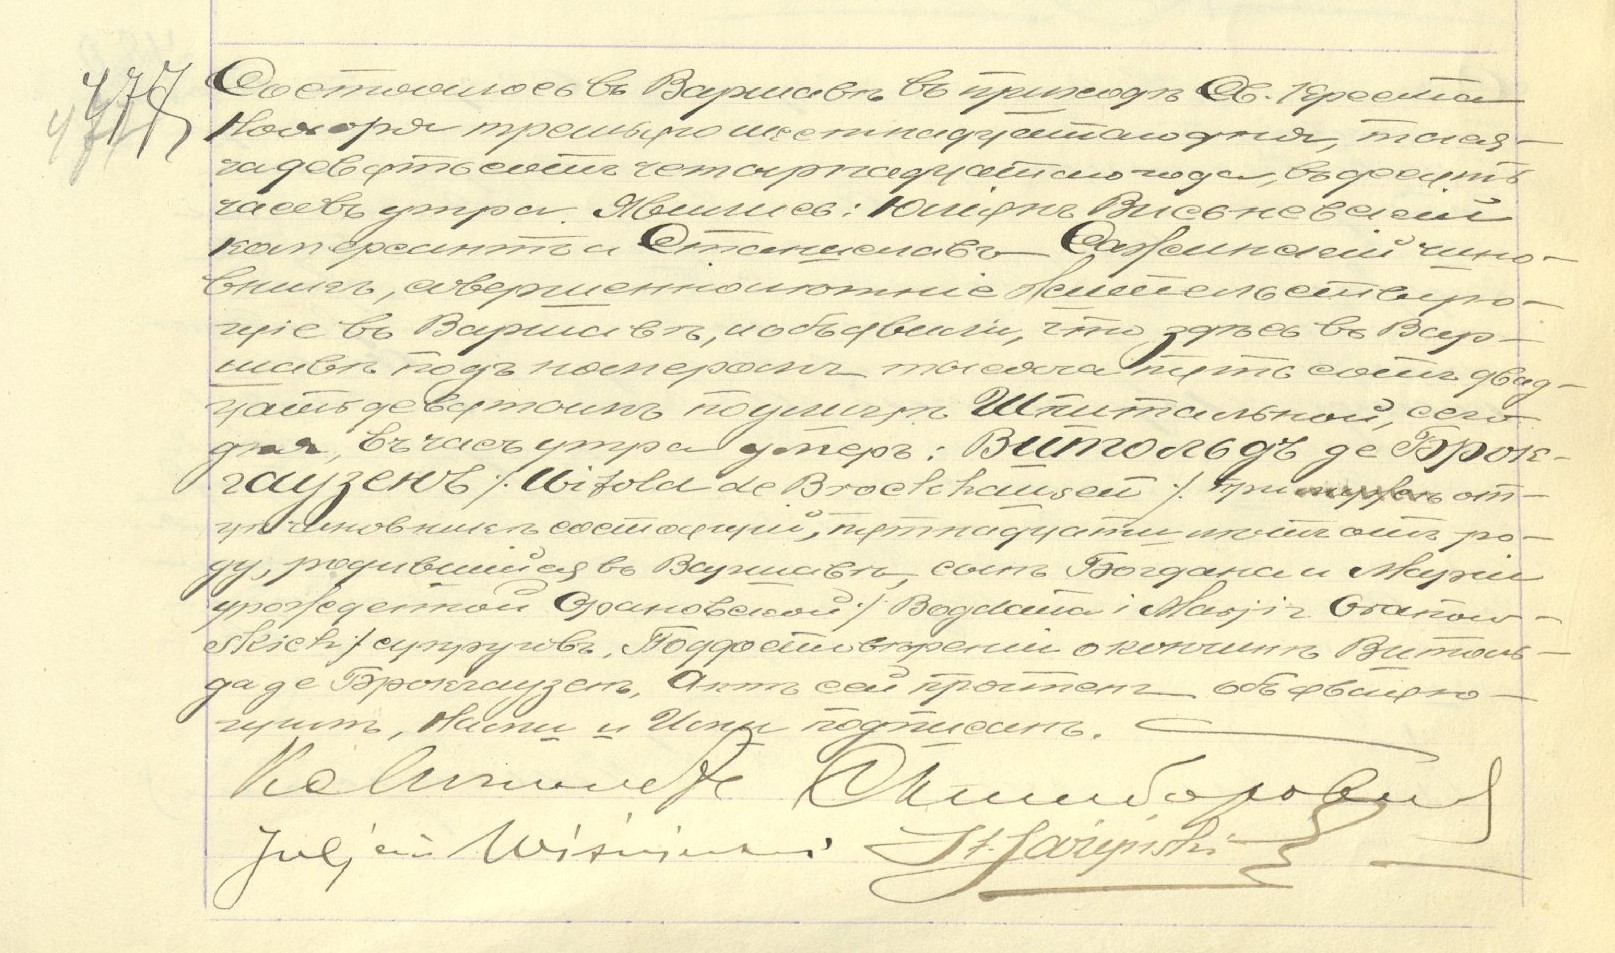 477
Состоялось въ Варшавѣ въ приходѣ Св. Креста
Ноября третьяго шестнадцатаго дня, тыся-
ча девятьсотъ четырнадцатаго года, въ десять
часовъ утра. Явились: Юліянъ Висьневскій
коммерсантъ и Станиславъ Сажинскій чино-
вникъ, совершеннолѣтніе жительствую-
щіе въ Варшавѣ, и объявили, что здѣсь въ Вар-
шавѣ подъ номеромъ тысяча пятьсотъ двад-
цать девятомъ по улицѣ Шпитальной, сего
дня, въ часъ утра умеръ: Витольдъ де Брок-
гаузенъ /. Witold de Brockhausen /. при от-
цѣ чиновникѣ состоящій, пятнадцати лѣтъ отъ ро-
ду, родившійся въ Варшавѣ, сынъ Богдана и Маріи
урожденной Орановской / Bogdana i Marji z Oranow-
skich / супруговъ. По удостовѣреніи о кончинѣ Витоль-
да де Брокгаузенъ, Актъ сей прочтенъ объявляю-
щимъ, Нами и Ими подписанъ.
Juljan Wiśniewski St. Sarżyński